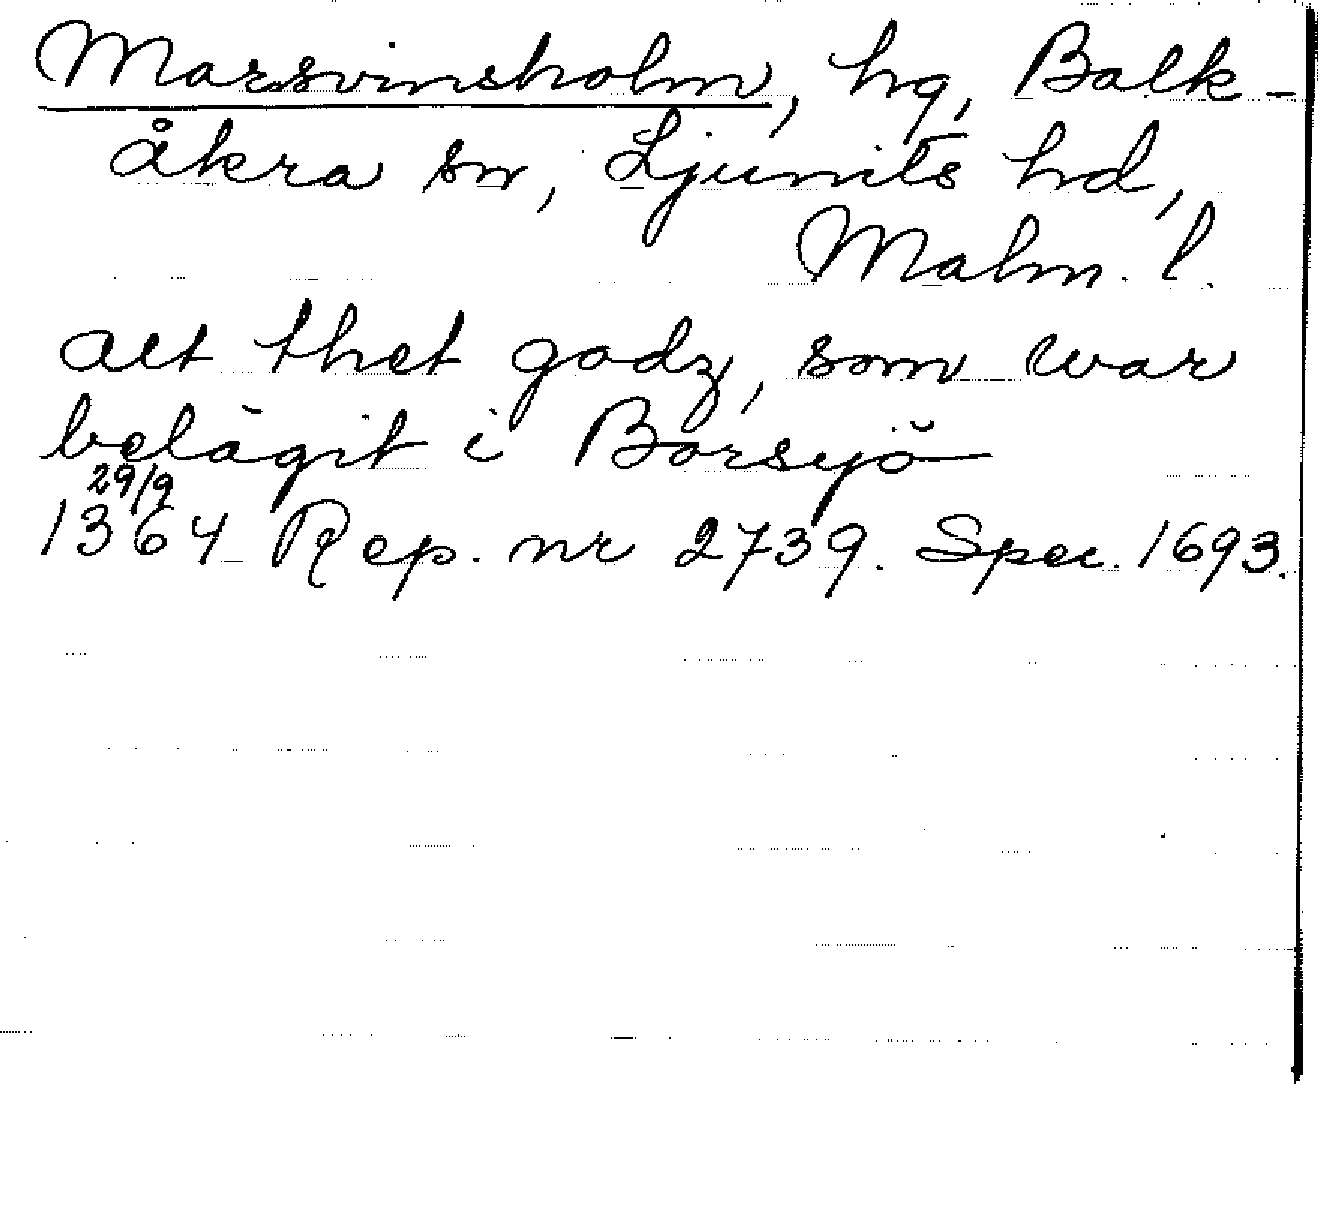 Marsvinsholm, hg, Balk-
åkra sn, Ljunits hd,
Malm. l.
alt thet godz, som war
belägit i Borsyö
29/9
1364 Rep. nr 2739. Spec. 1693.